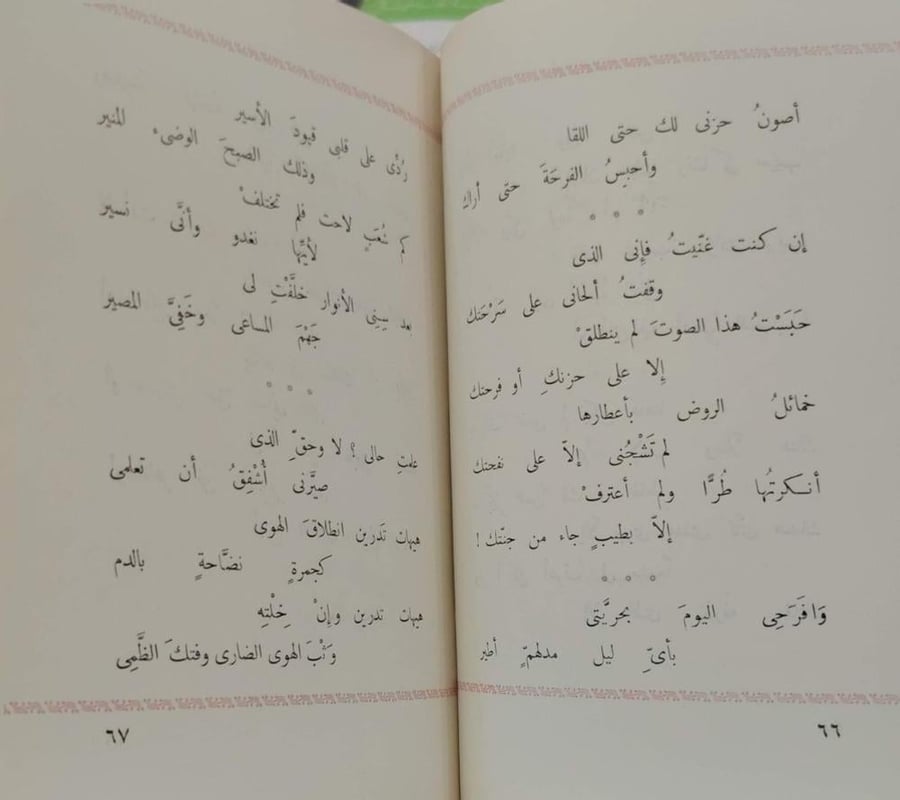 أصونُ حزنى لك حتى اللقا
وأحبِسُ الفرحَةَ حتّى أراك
* * *
إن كنت غنّيتُ فإنى الذى
وقفتُ ألحانى على سَرْحَتك
حَبَسْتُ هذا الصوتَ لم ينطلقْ
إلا على حزنكِ أو فرحتك
خمائلُ الروض بأعطارها
لم تَشْجُنى إلاّ على نفحتك
أنكرتُها طُرًّا ولم أعترفْ
إلاّ بطيبٍ جاء من جنّتك !
* * *
وَافَرَحِى اليومَ بحريَّتى
بأىِّ ليل مدلهمٍّ أطير
٦٦
رُدِّى على قلبى قيودَ الأسير
وذلك الصبحَ الوضىء المنير
كم شُعَبٍ لاحت فلم تختلفْ
لأيِّها نغدو وأنَّى نسير
بعد سِنِى الأنوار خلَّفْتِ لى
جَهْمَ المساعى وخَفِىَّ المصير
* * *
علمتِ حالى ؟ لا وحقِّ الذى
صيَّرنى أُشْفِقُ أن تعلمى
هيهات تدرين انطلاقَ الهوى
كجمرةٍ نضَّاحةٍ بالدم
هيهات تدرين وإنْ خِلْتِهِ
وَثْبَ الهوى الضارى وفتكَ الظَّمِى
٦٧